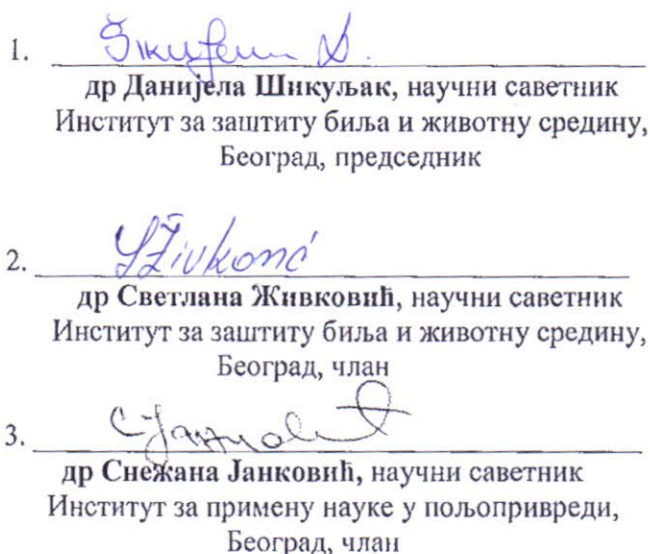 1. Šikuljak D.
др Данијела Шикуљак, научни саветник
Институт за заштиту биља и животну средину,
Београд, председник
2. SŽivković
др Светлана Живковић, научни саветник
Институт за заштиту биља и животну средину,
Београд, члан
3.
др Снежана Јанковић, научни саветник
Институт за примену науке у пољопривреди,
Београд, члан